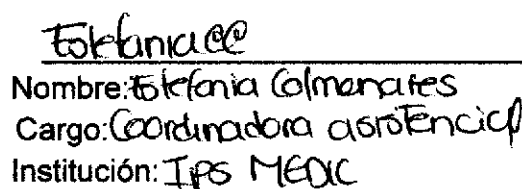 Estefania CC
Nombre: Estefania Colmenares
Cargo: Coordinadora asistencial
Institución: IPS MEDIC